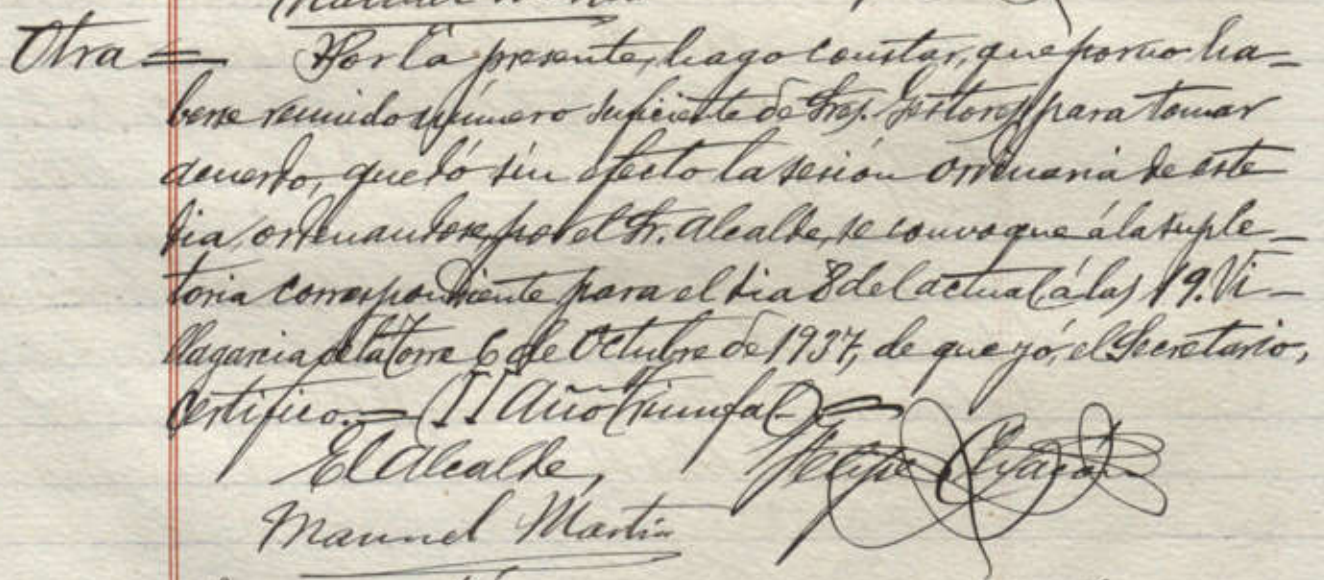 Otra = Por la presente, hago constar, que por no ha-
berse reunido número suficiente de Sres. Gestores para tomar
acuerdo, quedó sin efecto la sesión ordinaria de este
dia, ordenandose, por el Sr. Alcalde, se convoque á la suple-
toria correspondiente para el dia 8 del actual, á las 19. Vi-
llagarcia de la Torre 6 de Octubre de 1937, de que yó, el Secretario,
certifico.= (II Año Triunfal)=
El Alcalde, Felipe
Manuel Martin